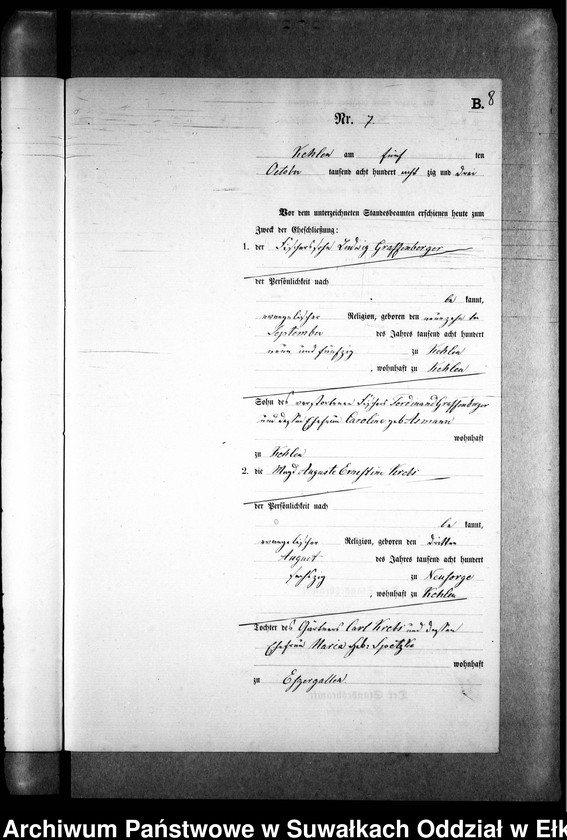 B. 8
Nr. 7
Kehlen am fünf ten
October tausend acht hundert acht zig und drei
Vor dem unterzeichneten Standesbeamten erschienen heute zum
Zweck der Eheschließung:
1. der Ludwig Graffenberger
der Persönlichkeit nach
be kannt,
evangelischer Religion, geboren den neunzehn ten
September des Jahres tausend acht hundert
neun und fünfzig zu Kehlen
, wohnhaft zu Kehlen
Sohn des verstorbenen Fischers Ferdinand Graffenberger
und dessen Ehefrau Caroline geb.
wohnhaft
zu Kehlen
2. die Magd Auguste Ernestine Krebs
der Persönlichkeit nach
be kannt,
evangelischer Religion, geboren den dritten
August des Jahres tausend acht hundert
sechszig zu Neusorge
, wohnhaft zu Kehlen
Tochter des Gärtners Carl Krebs und dessen
Ehefrau Maria geb.
wohnhaft
zu Eszergallen
Archiwum Państwowe w Suwałkach Oddział w Ełk